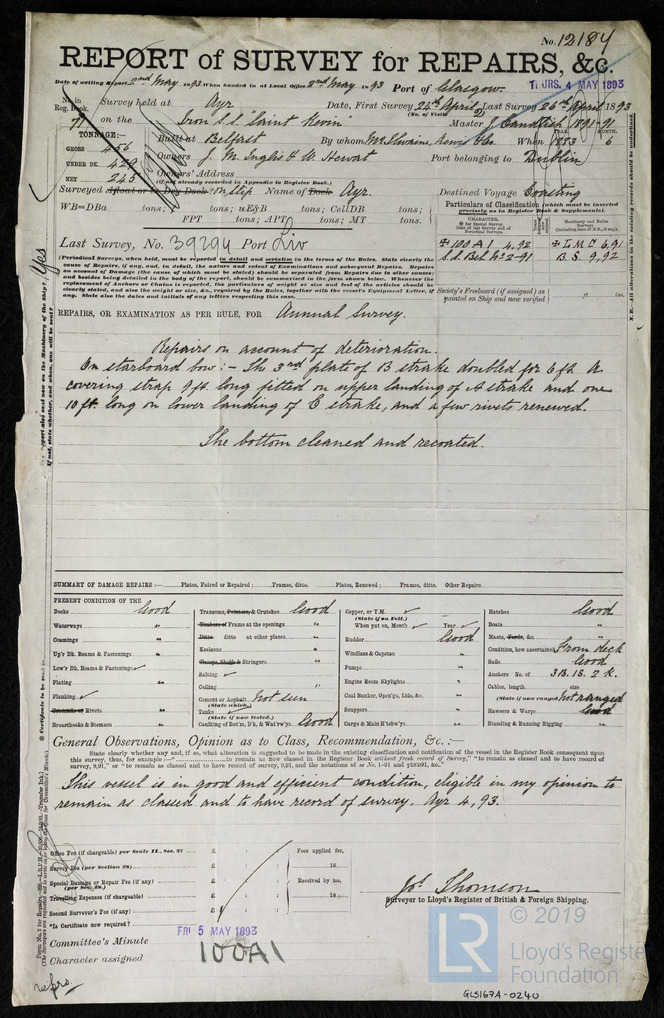 No. 12184
REPORT of SURVEY for REPAIRS, &c.
Date of writing Report 2nd May 1893 When handed in at Local Office 2nd May 1893 Port of Glasgow. THURS. 4 MAY 1893
No. in Reg. Book. Survey held at Ayr Date, First Survey 24th April Last Survey 26th April 1893
(No. of Visits 2)
71 on the Iron S.S. "Saint Kevin" Master J. Candlish 1891-91
TONNAGE:— Built at Belfast By whom McIlwaine, Lewis & Co. When 1883 6
YEAR. MONTH.
GROSS 456 Owners J. M. Inglis & W. Stewart Port belonging to Dublin
UNDER DK. 429 Owners' Address
(if not already recorded in Appendix to Register Book.)
NET 245
Surveyed Afloat or in Dry Dock on slip Name of Dock Ayr. Destined Voyage Coasting
WB=DBa tons; f tons; uE&B tons; CellDB tons;
FPT tons; APT tons; MT tons.
Particulars of Classification (which must be inserted precisely as in Register Book & Supplements).
CHARACTER.
Last Survey, No. 39294 Port Liv
✠ 100A1 4.92 ✠ L.M.C. 6.91
S.S. Bel. No. 2-91 B.S. 9.92
(Periodical Surveys, when held, must be reported in detail and seriatim in the terms of the Rules. State clearly the cause of Repairs, if any, and, in detail, the nature and extent of Examinations and subsequent Repairs. Repairs on account of Damage (the cause of which must be stated) should be separated from Repairs due to other causes; and besides being detailed in the body of the report, should be summarized in the form shown below. Whenever the replacement of Anchors or Chains is reported, the particulars of weight and test of the articles should be clearly stated, and also the weight or size, &c., required by the Rules, together with the vessel's Equipment Letter, if any. State also the dates and initials of any letters respecting this case.
Society's Freeboard (if assigned) as painted on Ship and now verified ft. ins.
REPAIRS, OR EXAMINATION AS PER RULE, FOR Annual Survey.
Repairs on account of deterioration.
On starboard bow:- The 3rd plate of B strake doubled for 6 ft. A
covering strap 9 ft. long fitted on upper landing of A strake and one
10 ft. long on lower landing of C strake, and a few rivets renewed.
The bottom cleaned and recoated.
SUMMARY OF DAMAGE REPAIRS:— Plates, Faired or Repaired: Frames, ditto. Plates, Renewed: Frames, ditto. Other Repairs.
PRESENT CONDITION OF THE
Decks Good
Waterways "
Coamings "
Up'r Dk. Beams & Fastenings "
Low'r Dk. Beams & Fastenings
Plating "
Planking
Treenails or Rivets "
Breasthooks & Stemson "
Transoms, Pointers, & Crutches Good
Timbers or Frame at the openings "
Ditto ditto at other places "
Keelsons "
Clamps, Shelfs & Stringers "
Salting
Ceiling "
Cement or Asphalt Not seen
(State which.)
Tanks
(State if now tested.)
Caulking of Bot'm, D'k, & Wat'rw'ys Good
Copper, or Y.M.
(State if on Felt.)
When put on, Month Year
Rudder Good
Windlass & Capstan "
Pumps "
Engine Room Skylights "
Coal Bunker, Open'gs, Lids, &c. "
Scuppers "
Cargo & Main H'tchw'ys "
Hatches Good
Boats "
Masts, Yards, &c. "
Condition, how ascertained From deck
Sails Good
Anchors No. of 3B. 1S. 2K.
Cables, length size
(State if now ranged) Not ranged
Hawsers & Warps Good
Standing & Running Rigging "
General Observations, Opinion as to Class, Recommendation, &c.:—
State clearly whether any, and if so, what alteration is suggested to be made in the existing classification and notification of the vessel in the Register Book consequent upon
This vessel is in good and efficient condition, eligible in my opinion to
remain as classed and to have record of survey. Ayr 4,93.
Office Fee (if chargeable) per Scale II., Sec. 27 £ : : Fees applied for,
Survey Fee (per Section 28) £ : : 18
Special Damage or Repair Fee (if any) £ : : Received by me,
(per Sec. 28.)
Travelling Expenses (if chargeable) £ : : 18
Second Surveyor's Fee (if any) £ : :
*Is Certificate now required?
Jos. Thomson
Surveyor to Lloyd's Register of British & Foreign Shipping.
Committee's Minute FRI 5 MAY 1893
Character assigned 100A1
© 2019
LR
Lloyd's Register
Foundation
GLS167A-0240